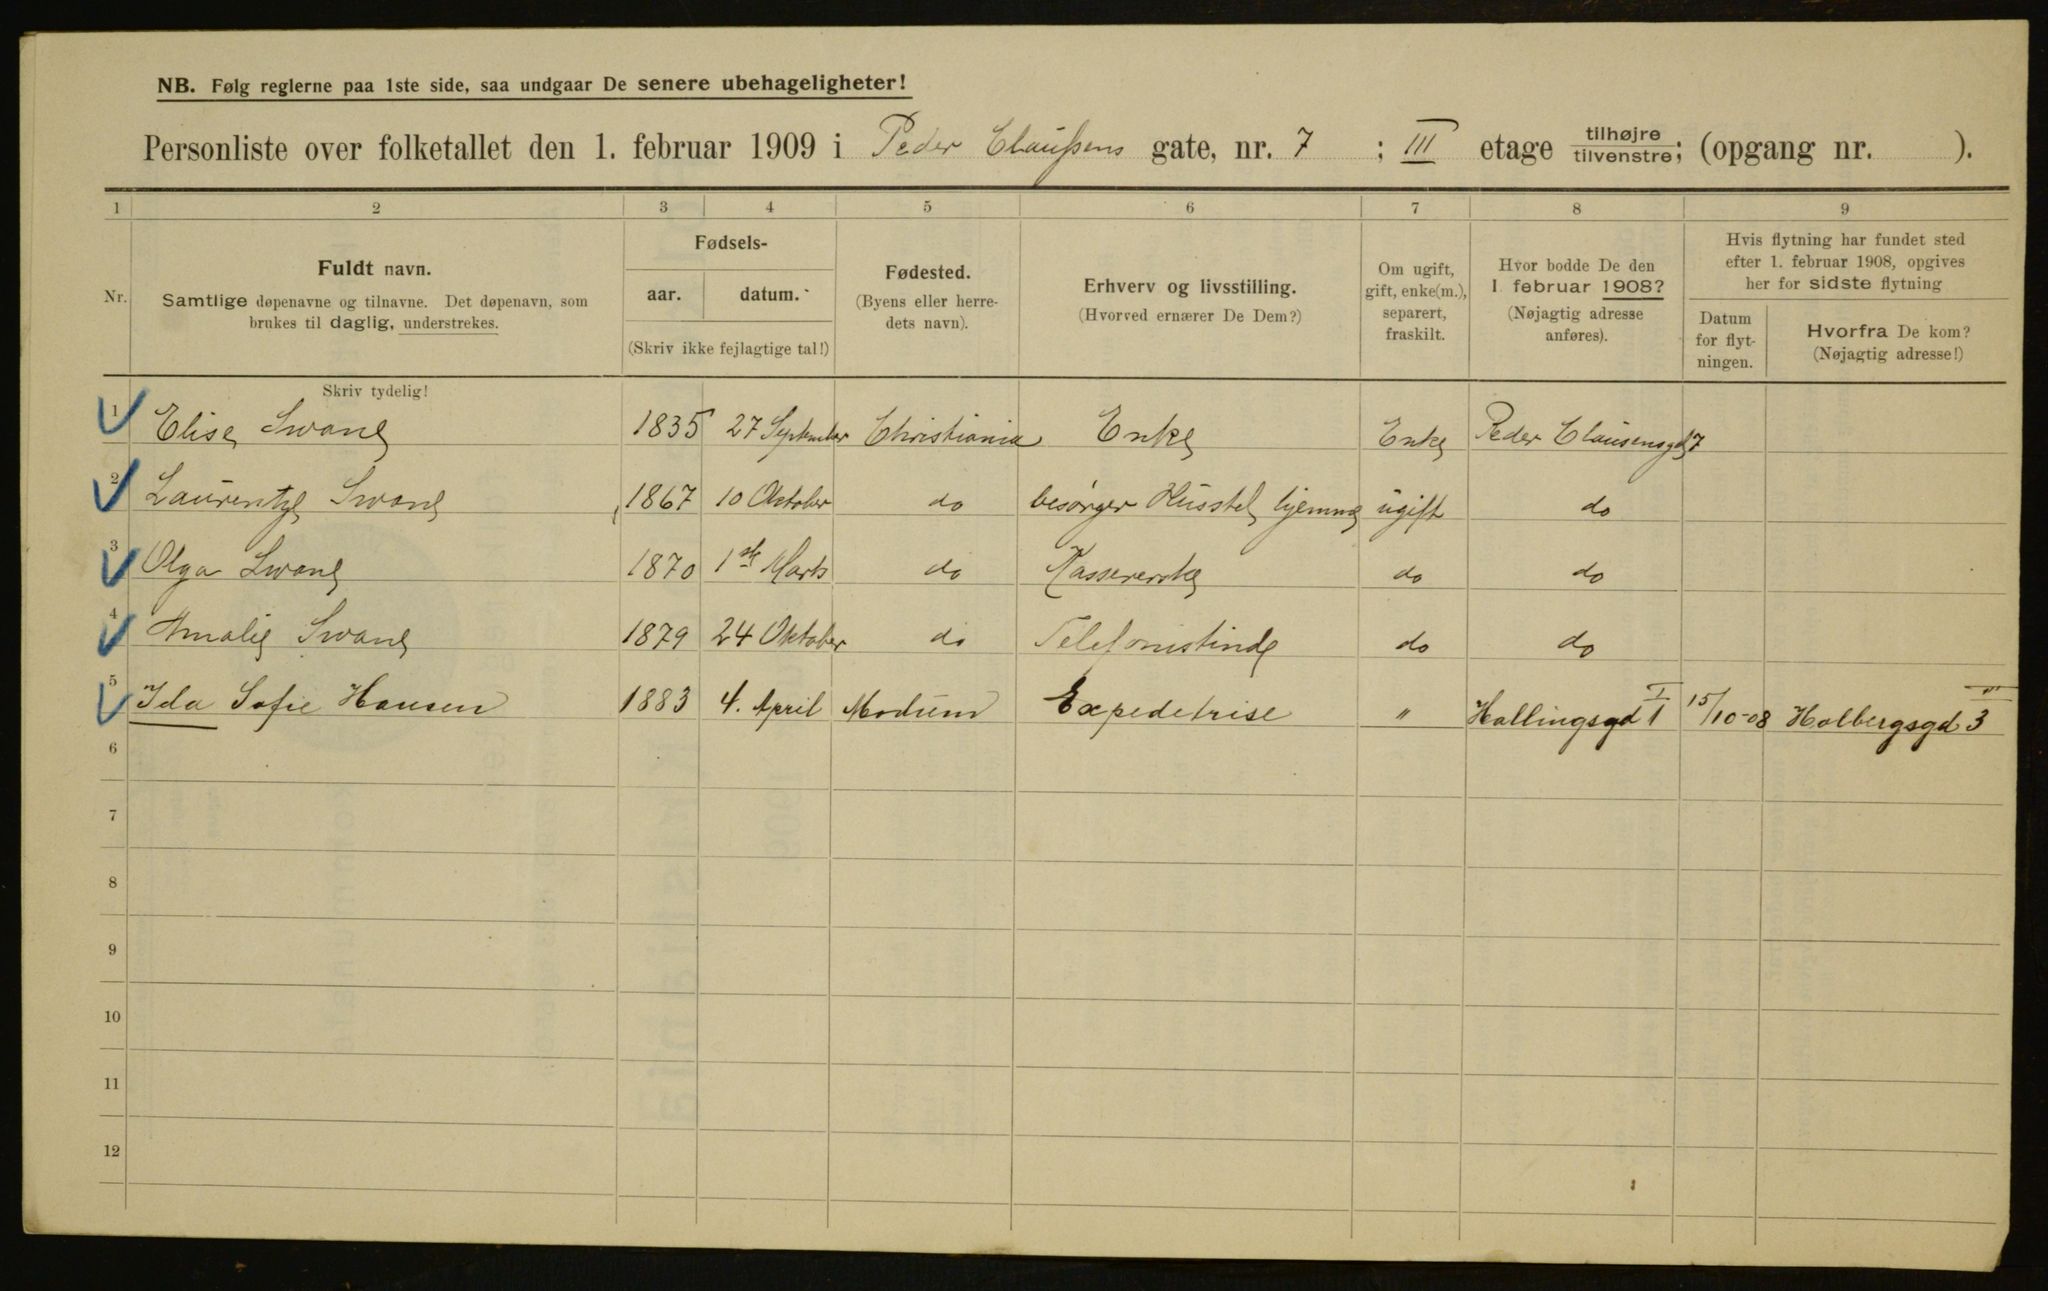 NB. Følg reglerne paa 1ste side, saa undgaar De senere ubehageligheter!
Personliste over folketallet den 1. februar 1909 i Peder Claussens gate, nr. 7 ; III etage tilhøjre tilvenstre; (opgang nr. ).
1 2 3 4 5 6 7 8 9
Nr.
Fuldt navn.
Samtlige døpenavne og tilnavne. Det døpenavn, som
brukes til daglig, understrekes.
Skriv tydelig!
Fødsels-
aar. datum.
(Skriv ikke fejlagtige tal!)
Fødested.
(Byens eller herre-
dets navn).
Erhverv og livsstilling.
(Hvorved ernærer De Dem?)
Om ugift,
gift, enke(m.),
separert,
fraskilt.
Hvor bodde De den
1. februar 1908?
(Nøjagtig adresse
anføres).
Hvis flytning har fundet sted
efter 1. februar 1908, opgives
her for sidste flytning
Datum
for flyt-
ningen.
Hvorfra De kom?
(Nøjagtig adresse!)
1 Elise Swane 1835 27 September Christiania Enke Enke Peder Clausensgd 7
2 Laurentze Swane 1867 10 Oktober do besørger Husstel hjemme ugift do
3 Olga Swane 1870 1ste Marts do Kassererske do do
4 Amalie Swane 1879 24 Oktober do Telefonistinde do do
5 Ida Sofie Hansen 1883 4. April Modum Expeditrise " Hallingsgd 1 I 15/10-08 Holbergsgd 3
6
7
8
9
10
11
12